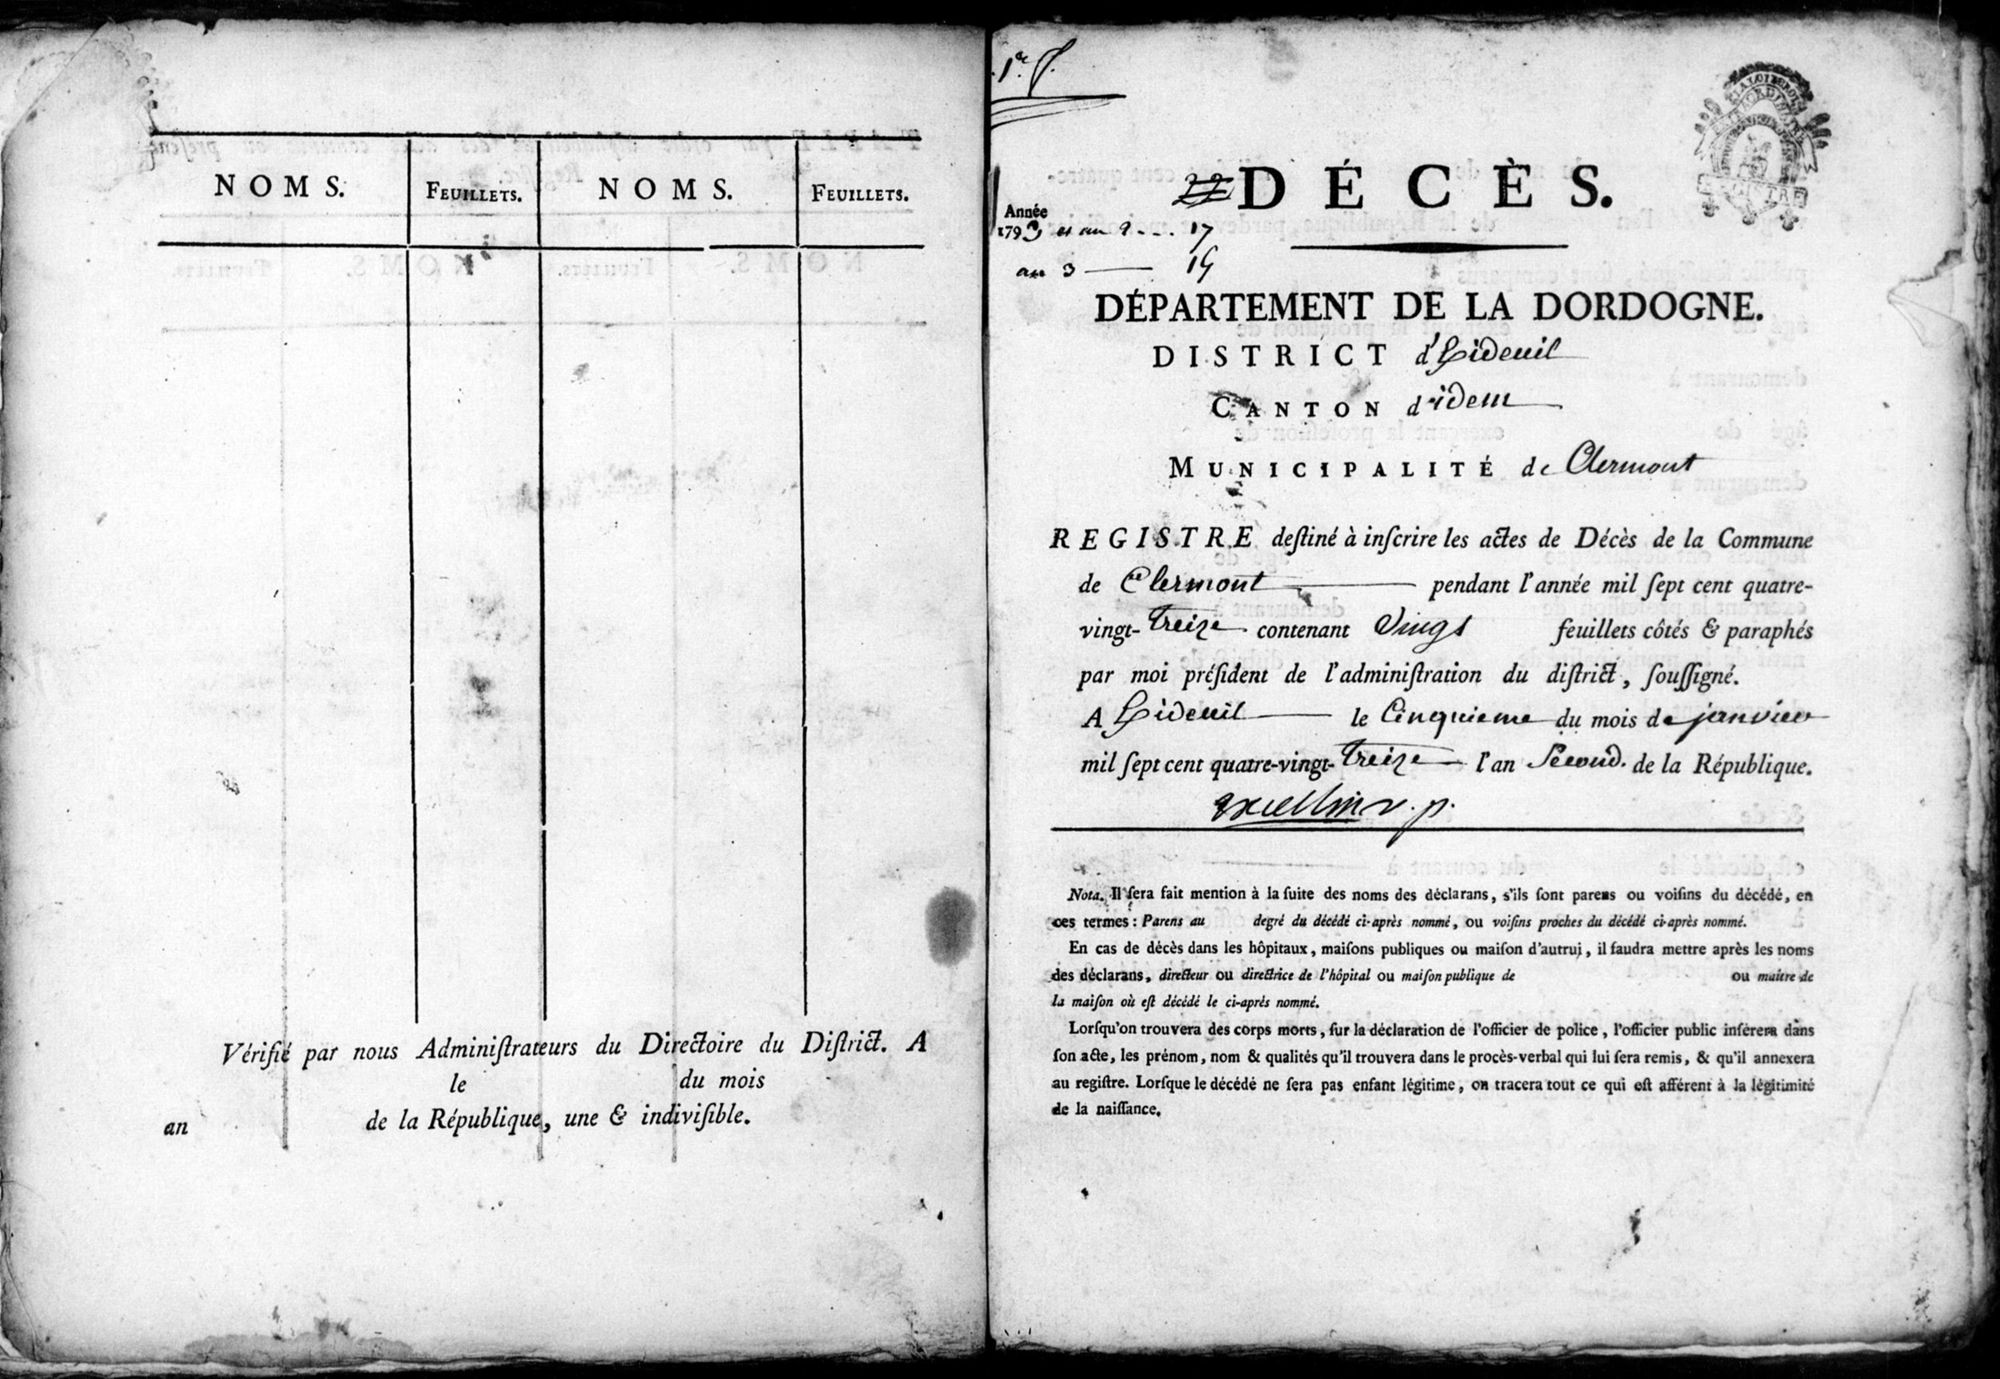 NOMS. FEUILLETS. NOMS. FEUILLETS.
Vérifié par nous Adminiſtrateurs du Directoire du Diſtrict. A
le du mois
an de la République, une & indiviſible.
1er
DÉCÈS.
Année
1793 et an 2 17
an 3
DÉPARTEMENT DE LA DORDOGNE.
DISTRICT d'Exideuil
CANTON d'idem
MUNICIPALITÉ de Clermont
REGISTRE deſtiné à inſcrire les actes de Décès de la Commune
de Clermont pendant l'année mil ſept cent quatre-
vingt-treize contenant Vingt feuillets côtés & paraphés
par moi préſident de l'adminiſtration du diſtrict, ſouſſigné.
A Exideuil le Cinquieme du mois de janvier
mil ſept cent quatre-vingt-treize l'an Second. de la République.
Nota. Il ſera fait mention à la ſuite des noms des déclarans, s'ils ſont parens ou voiſins du décédé, en
ces termes : Parens au degré du décédé ci-après nommé, ou voiſins proches du décédé ci-après nommé.
En cas de décès dans les hôpitaux, maiſons publiques ou maiſon d'autrui, il faudra mettre après les noms
des déclarans, directeur ou directrice de l'hôpital ou maiſon publique de ou maître de
la maiſon où eſt décédé le ci-après nommé.
Lorſqu'on trouvera des corps morts, ſur la déclaration de l'officier de police, l'officier public inſérera dans
ſon acte, les prénom, nom & qualités qu'il trouvera dans le procès-verbal qui lui ſera remis, & qu'il annexera
au regiſtre. Lorſque le décédé ne ſera pas enfant légitime, on tracera tout ce qui eſt afférent à la légitimité
de la naiſſance.